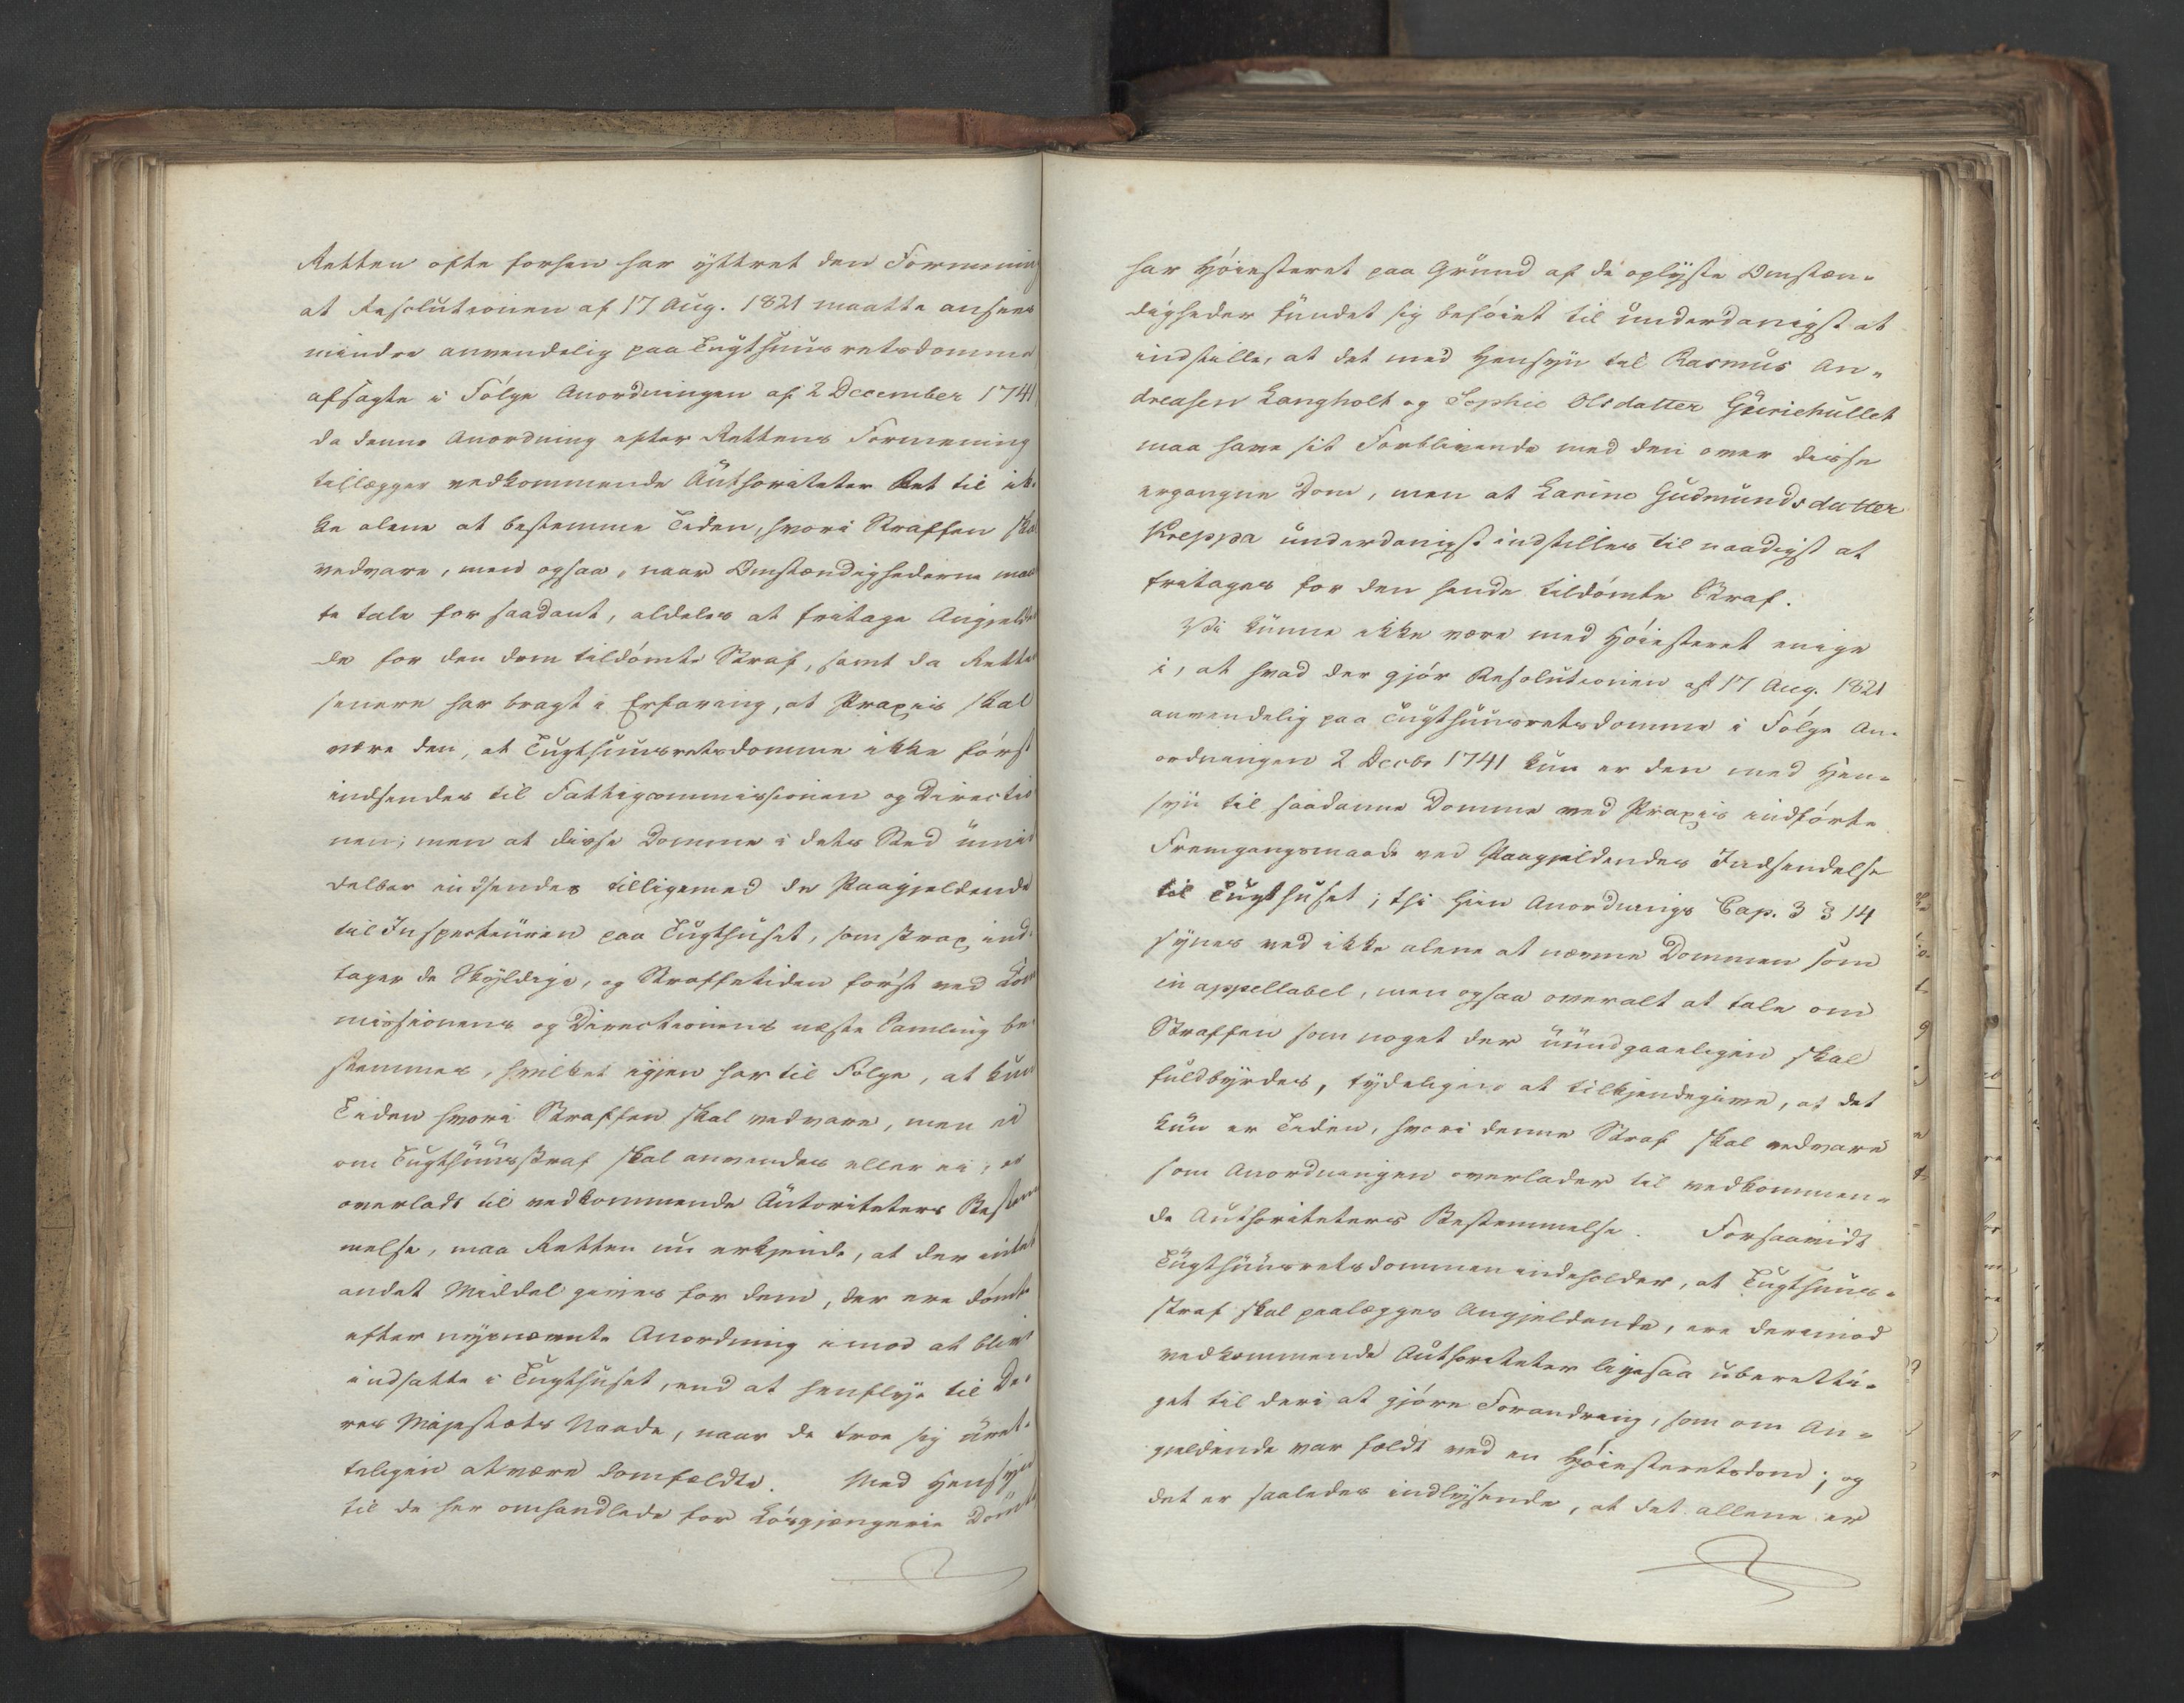 Retten ofte forhen har yttret den Formening
at Resolutionen af 17 Aug. 1821 maatte ansees
mindre anvendelig paa Tugthuusretsdomme
afsagte i Følge Anordningen af 2 December 1741
da denne Anordning efter Rettens Formening
tillægger vedkommende Authoriteter Ret til ik-
ke alene at bestemme Tiden, hvori Straffen skal
vedvare, men ogsaa, naar Omstændighederne maat
te tale for saadant, aldeles at fritage Angjelden
de for den dem tildømte Straf, samt da Retten
senere har bragt i Erfaring, at Praxis skal
være den, at Tugthuusretsdomme ikke først
indsendes til Fattigcommissionen og Directio
nen; men at disse Domme i dets Sted umid
delbar indsendes tilligemed de Paagjeldende
til Inspecteuren paa Tugthuset, som strax ind-
tager de Skyldige, og Straffetiden først ved Com
missionens og Directionens næste Samling be-
stemmes, hvilket igjen har til Følge, at kun
Tiden hvori Straffen skal vedvare, men ei
om Tugthuusstraf skal anvendes eller ei, er
overladt til vedkommende Autoriteters Bestem
melse, maa Retten nu erkjende, at der intet
andet Middel gives for dem, der ere dømte
efter nysnævnte Anordning imod at blive
indsatte i Tugthuset, end at henflye til De-
res Majestæts Naade, naar de troe sig uret-
teligen at være domfældte. Med Hensyn
til de her omhandlede for Løsgjængerie Dømte
har Høiesteret paa Grund af de oplyste Omstæn-
digheder fundet sig beføiet til underdanigst at
indstille, at det med Hensyn til Rasmus An-
dreasen Langholt og Sophie Olsdatter Guriehullet
maa have sit Forblivende med den over disse
ergangne Dom, men at Karine Gudmundsdatter
Kreppa underdanigst indstilles til naadigst at
fritages for den hende tildømte Straf.
Vi kunne ikke være med Høiesteret enige
i, at hvad der gjør Resolutionen af 17 Aug. 1821
anvendelig paa Tugthuusretsdomme i Følge An-
ordningen 2 Decbr 1741 kun er den med Hen-
syn til saadanne Domme ved Praxis indførte
Fremgangsmaade ved Paagjeldendes Indsendelse
til Tugthuset; thi hiin Anordnings Cap. 3 § 14
synes ved ikke alene at nævne Dommen som
inappellabel, men ogsaa overalt at tale om
Straffen som noget der uundgaaeligen skal
fuldbyrdes, tydeligen at tilkjendegive, at det
kun er Tiden, hvori denne Straf skal vedvare
som Anordningen overlader til vedkommen-
de Authoriteters Bestemmelse. Forsaavidt
Tugthuusretsdommen indeholder, at Tugthuus-
straf skal paalægges Angjeldende, ere derimod
vedkommende Authoriteter ligesaa uberetti-
get til deri at gjøre Forandring, som om An-
gjeldende var fældt ved en Høiesteretsdom; og
det er saaledes indlysende, at det allene er